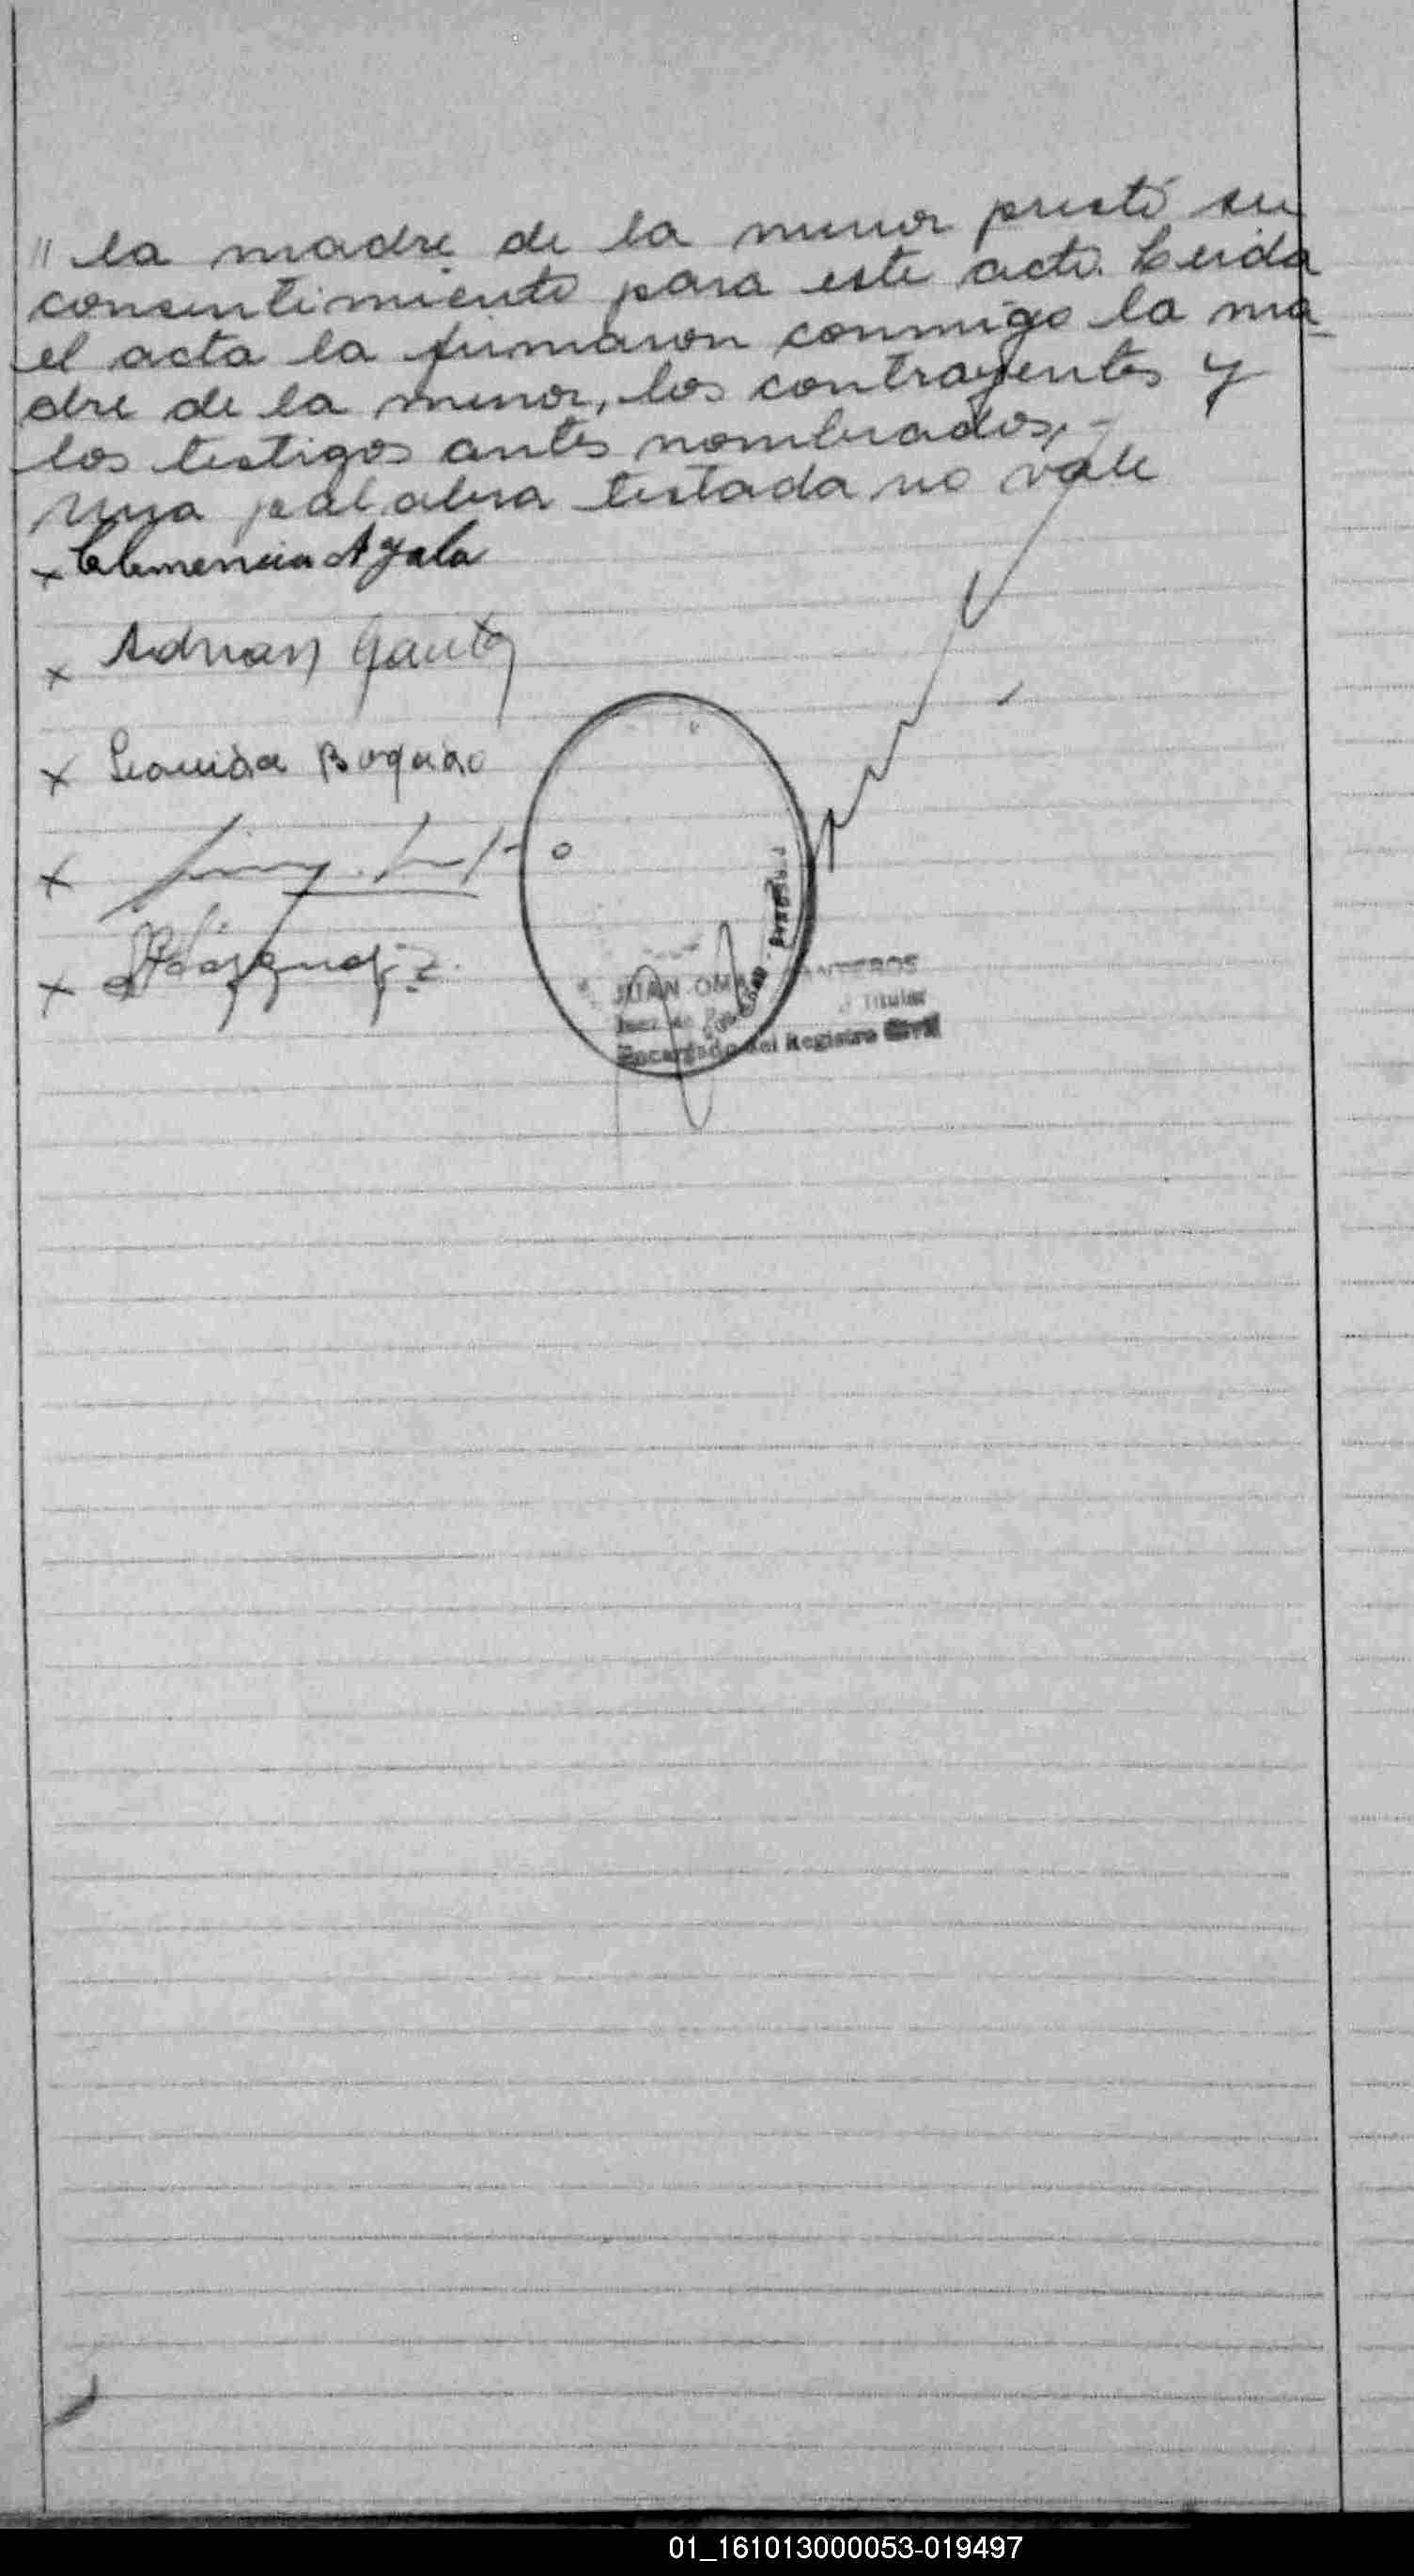 " la madre de la menor prestó su
consentimiento para este acto. Leida
el acta la firmaron conmigo la ma-
dre de la menor, los contrayentes y
los testigos antes nombrados,-
una palabra testada no vale
x Clemencia Ayala
x Adrian
x Bogado
x
x
JUAN OMA
Titular
Encargado del Registro Civil
01_161013000053-019497